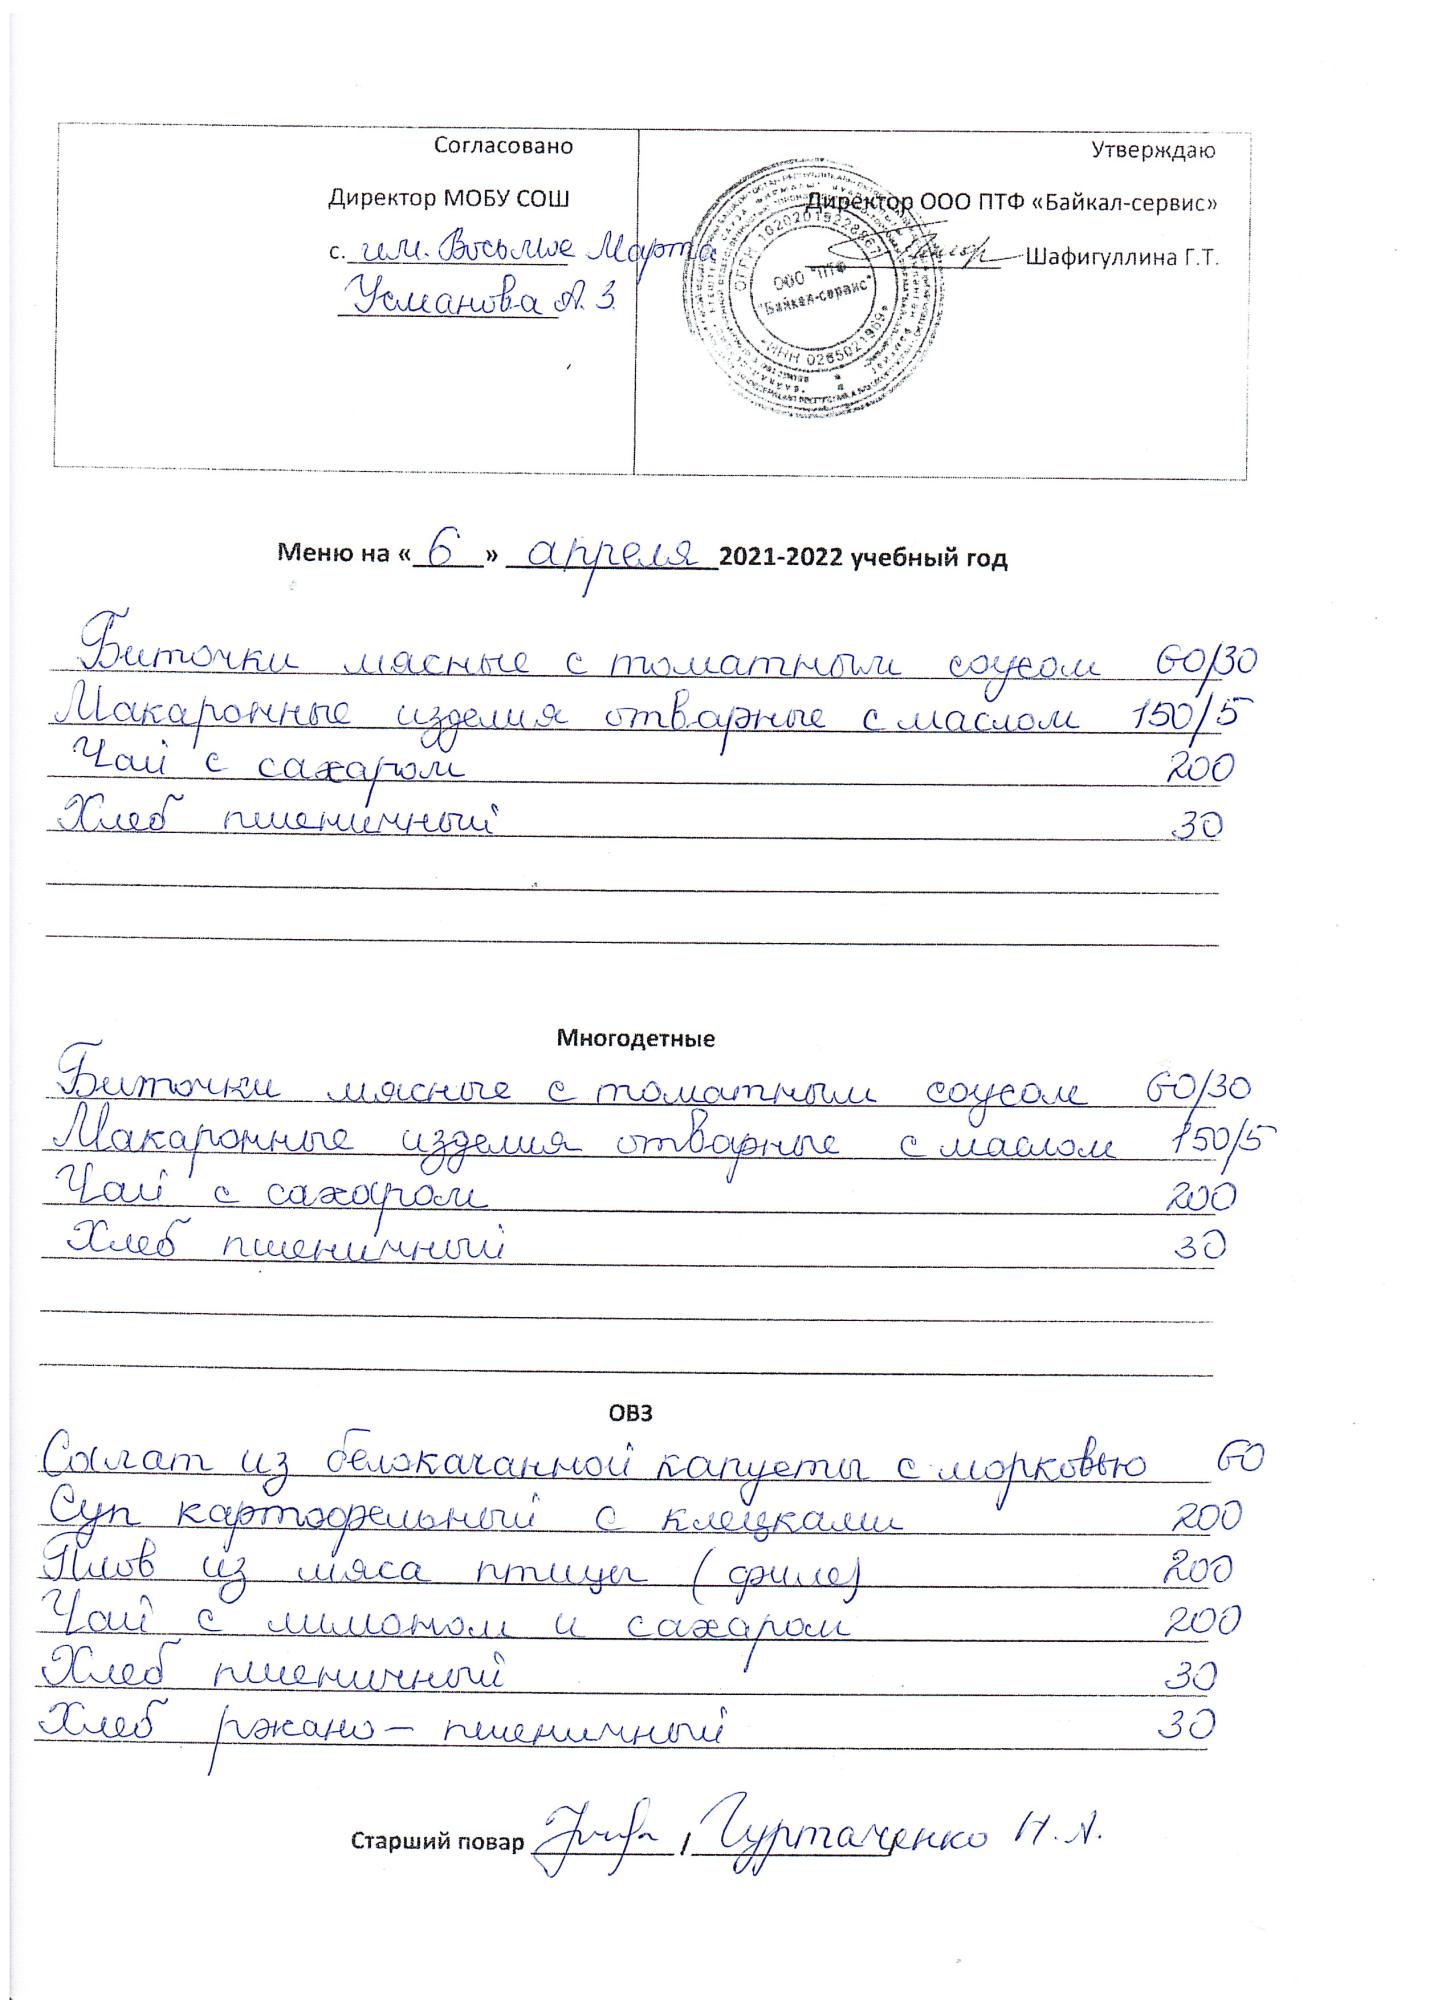 Согласовано
Директор МОБУ СОШ
с. им. Восьмое Марта
Усманова А. З.
Утверждаю
Директор ООО ПТФ «Байкал-сервис»
Шафигуллина Г.Т.
ОГРН 1020201922896
ООО "ПТФ
"Байкал-сервис"
ИНН 0265021969
Меню на « 6 » апреля 2021-2022 учебный год
Биточки мясные с томатным соусом 60/30
Макаронные изделия отварные с маслом 150/5
Чай с сахаром 200
Хлеб пшеничный 30
Многодетные
Биточки мясные с томатным соусом 60/30
Макаронные изделия отварные с маслом 150/5
Чай с сахаром 200
Хлеб пшеничный 30
ОВЗ
Салат из белокачанной капусты с морковью 60
Суп картофельный с клецками 200
Плов из мяса птицы (филе) 200
Чай с лимоном и сахаром 200
Хлеб пшеничный 30
Хлеб ржано – пшеничный 30
Старший повар / Гуртаченко Н. А.